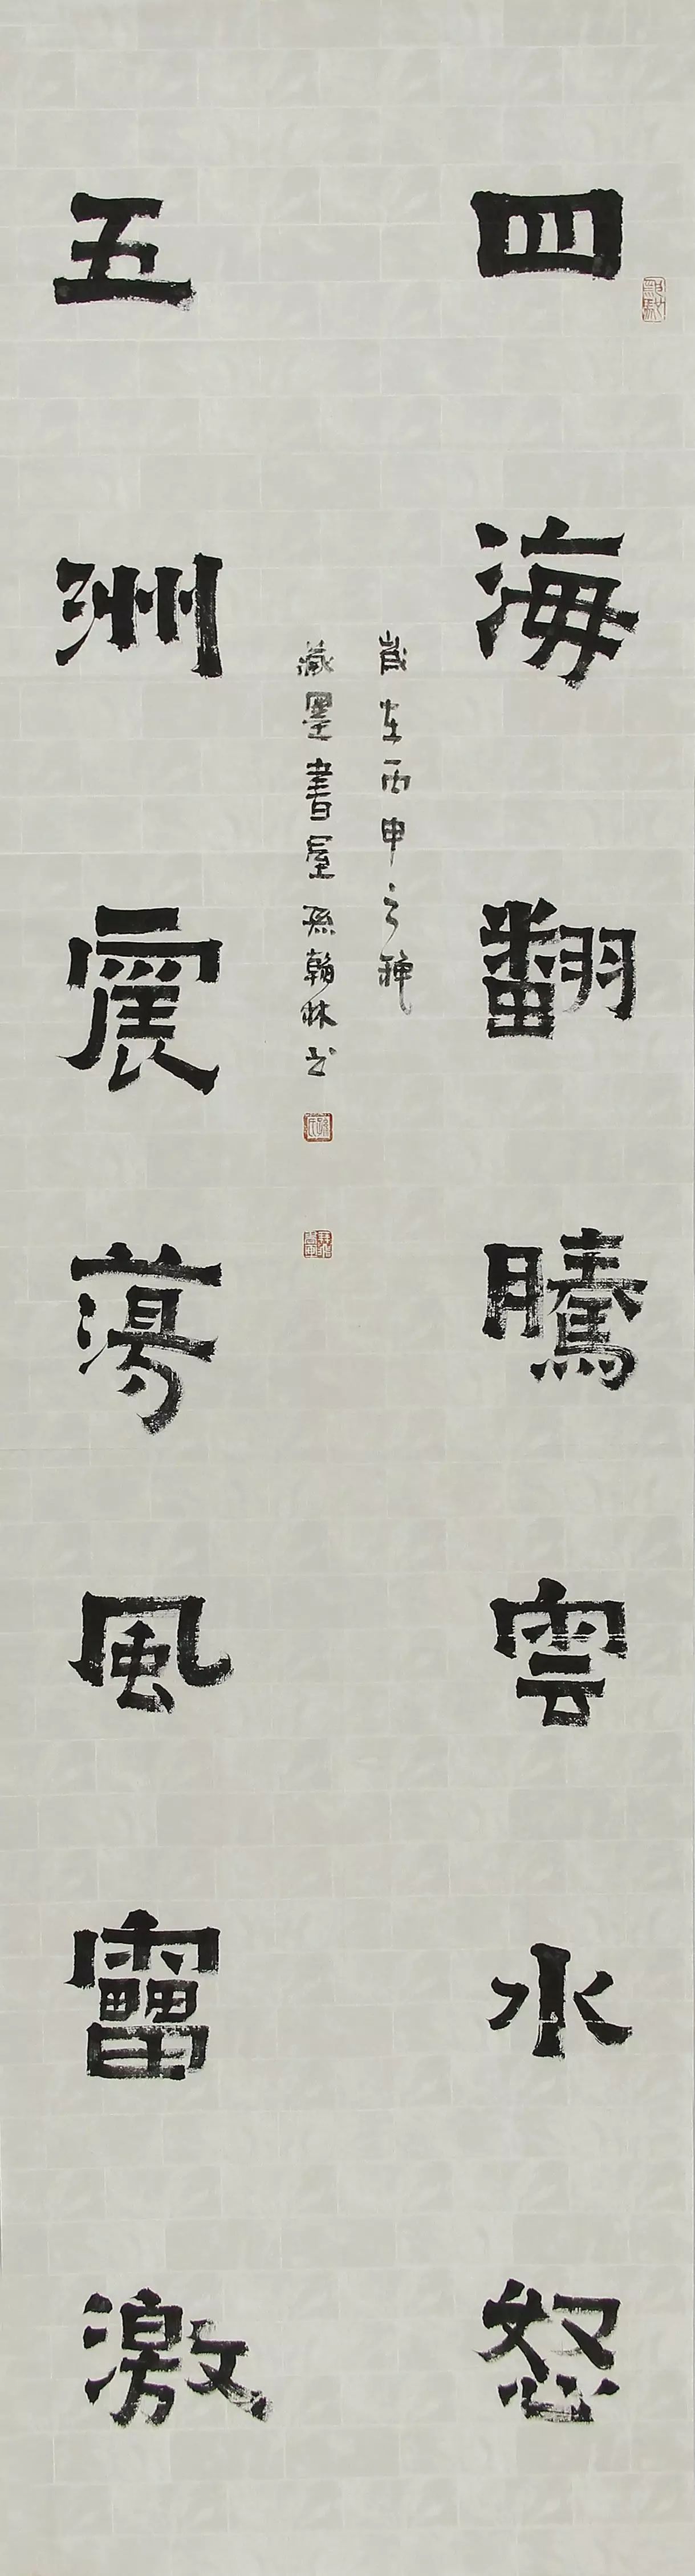 四海翻騰雲水怒
五洲震蕩風雷激
歲在丙申之秋
藏墨書屋孫翰林書